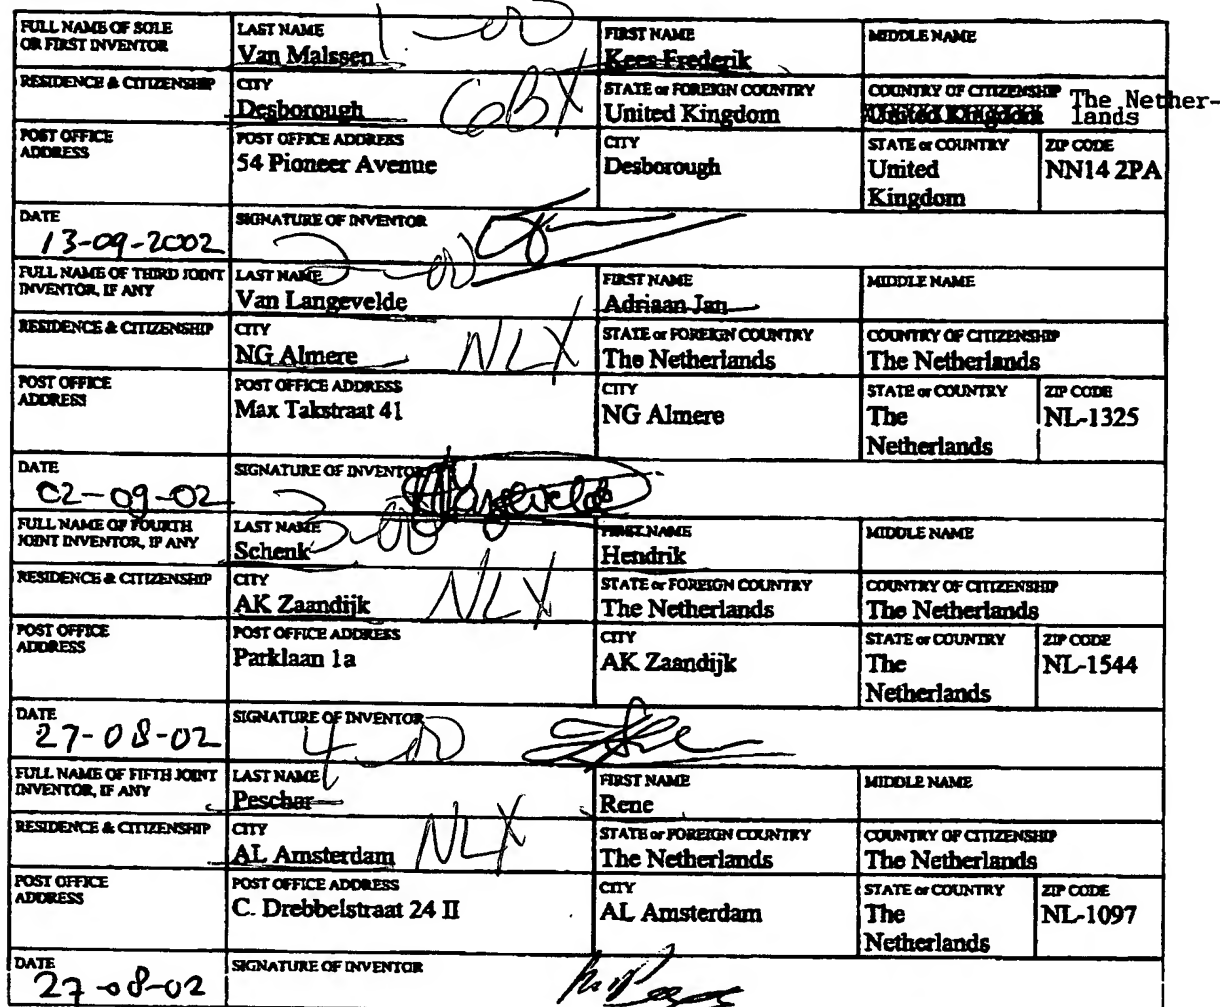 FULL NAME OF SOLE OR FIRST INVENTOR
LAST NAME
Van Malssen
FIRST NAME
Kees Frederik
MIDDLE NAME
1-00
RESIDENCE & CITIZENSHIP
CITY
Desborough
GBX
STATE or FOREIGN COUNTRY
United Kingdom
COUNTRY OF CITIZENSHIP
United Kingdom
The Nether-
lands
POST OFFICE ADDRESS
POST OFFICE ADDRESS
54 Pioneer Avenue
CITY
Desborough
STATE or COUNTRY
United
Kingdom
ZIP CODE
NN14 2PA
DATE
13-09-2002
SIGNATURE OF INVENTOR
2-00
FULL NAME OF THIRD JOINT INVENTOR, IF ANY
LAST NAME
Van Langevelde
FIRST NAME
Adriaan Jan
MIDDLE NAME
RESIDENCE & CITIZENSHIP
CITY
NG Almere
NLX
STATE or FOREIGN COUNTRY
The Netherlands
COUNTRY OF CITIZENSHIP
The Netherlands
POST OFFICE ADDRESS
POST OFFICE ADDRESS
Max Takstraat 41
CITY
NG Almere
STATE or COUNTRY
The
Netherlands
ZIP CODE
NL-1325
DATE
02-09-02
SIGNATURE OF INVENTOR
3-00
FULL NAME OF FOURTH JOINT INVENTOR, IF ANY
LAST NAME
Schenk
FIRST NAME
Hendrik
MIDDLE NAME
RESIDENCE & CITIZENSHIP
CITY
AK Zaandijk
NLX
STATE or FOREIGN COUNTRY
The Netherlands
COUNTRY OF CITIZENSHIP
The Netherlands
POST OFFICE ADDRESS
POST OFFICE ADDRESS
Parklaan 1a
CITY
AK Zaandijk
STATE or COUNTRY
The
Netherlands
ZIP CODE
NL-1544
DATE
27-08-02
SIGNATURE OF INVENTOR
4-00
FULL NAME OF FIFTH JOINT INVENTOR, IF ANY
LAST NAME
Peschar
FIRST NAME
Rene
MIDDLE NAME
RESIDENCE & CITIZENSHIP
CITY
AL Amsterdam
NLX
STATE or FOREIGN COUNTRY
The Netherlands
COUNTRY OF CITIZENSHIP
The Netherlands
POST OFFICE ADDRESS
POST OFFICE ADDRESS
C. Drebbelstraat 24 II
CITY
AL Amsterdam
STATE or COUNTRY
The
Netherlands
ZIP CODE
NL-1097
DATE
27-08-02
SIGNATURE OF INVENTOR